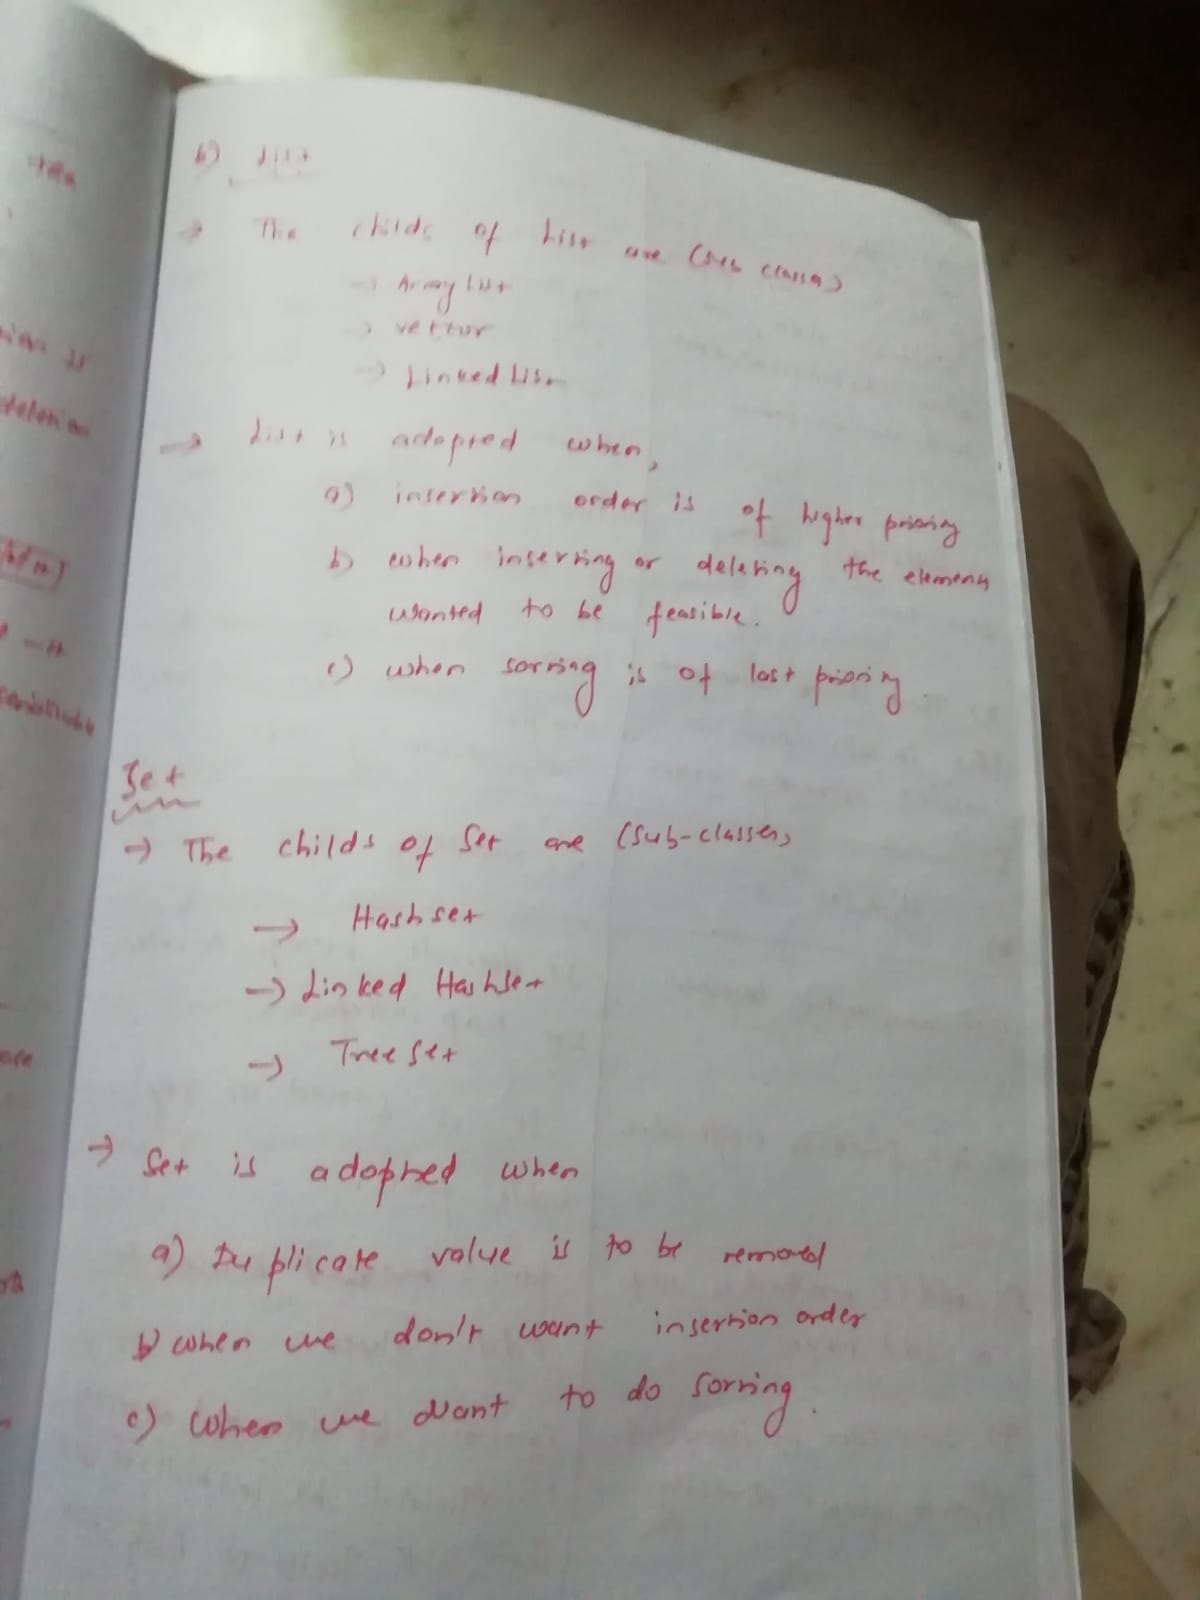 b) List
→ The childs of List are (sub classes)
→ Array List
→ vector
→ Linked List
→ List is adopted when,
a) insertion order is of higher priority
b) when inserting or deleting the elements
wanted to be feasible.
c) when sorting is of last priority.
Set
→ The childs of Set are (Sub-classes)
→ Hash set
→ Linked HashSet
→ Tree Set
→ Set is adopted when
a) Duplicate value is to be removed
b) when we don't want insertion order
c) When we want to do sorting.